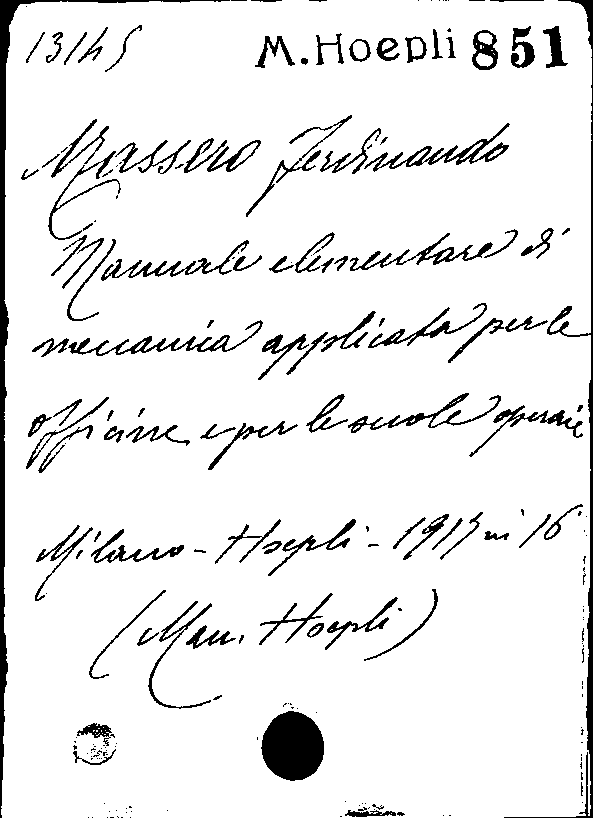 13145 M. Hoepli 851
Massero Ferdinando
Manuale elementare di
meccanica applicata per le
officine e per le scuole operaie
Milano - Hoepli - 1915 in 16°
(Man. Hoepli)